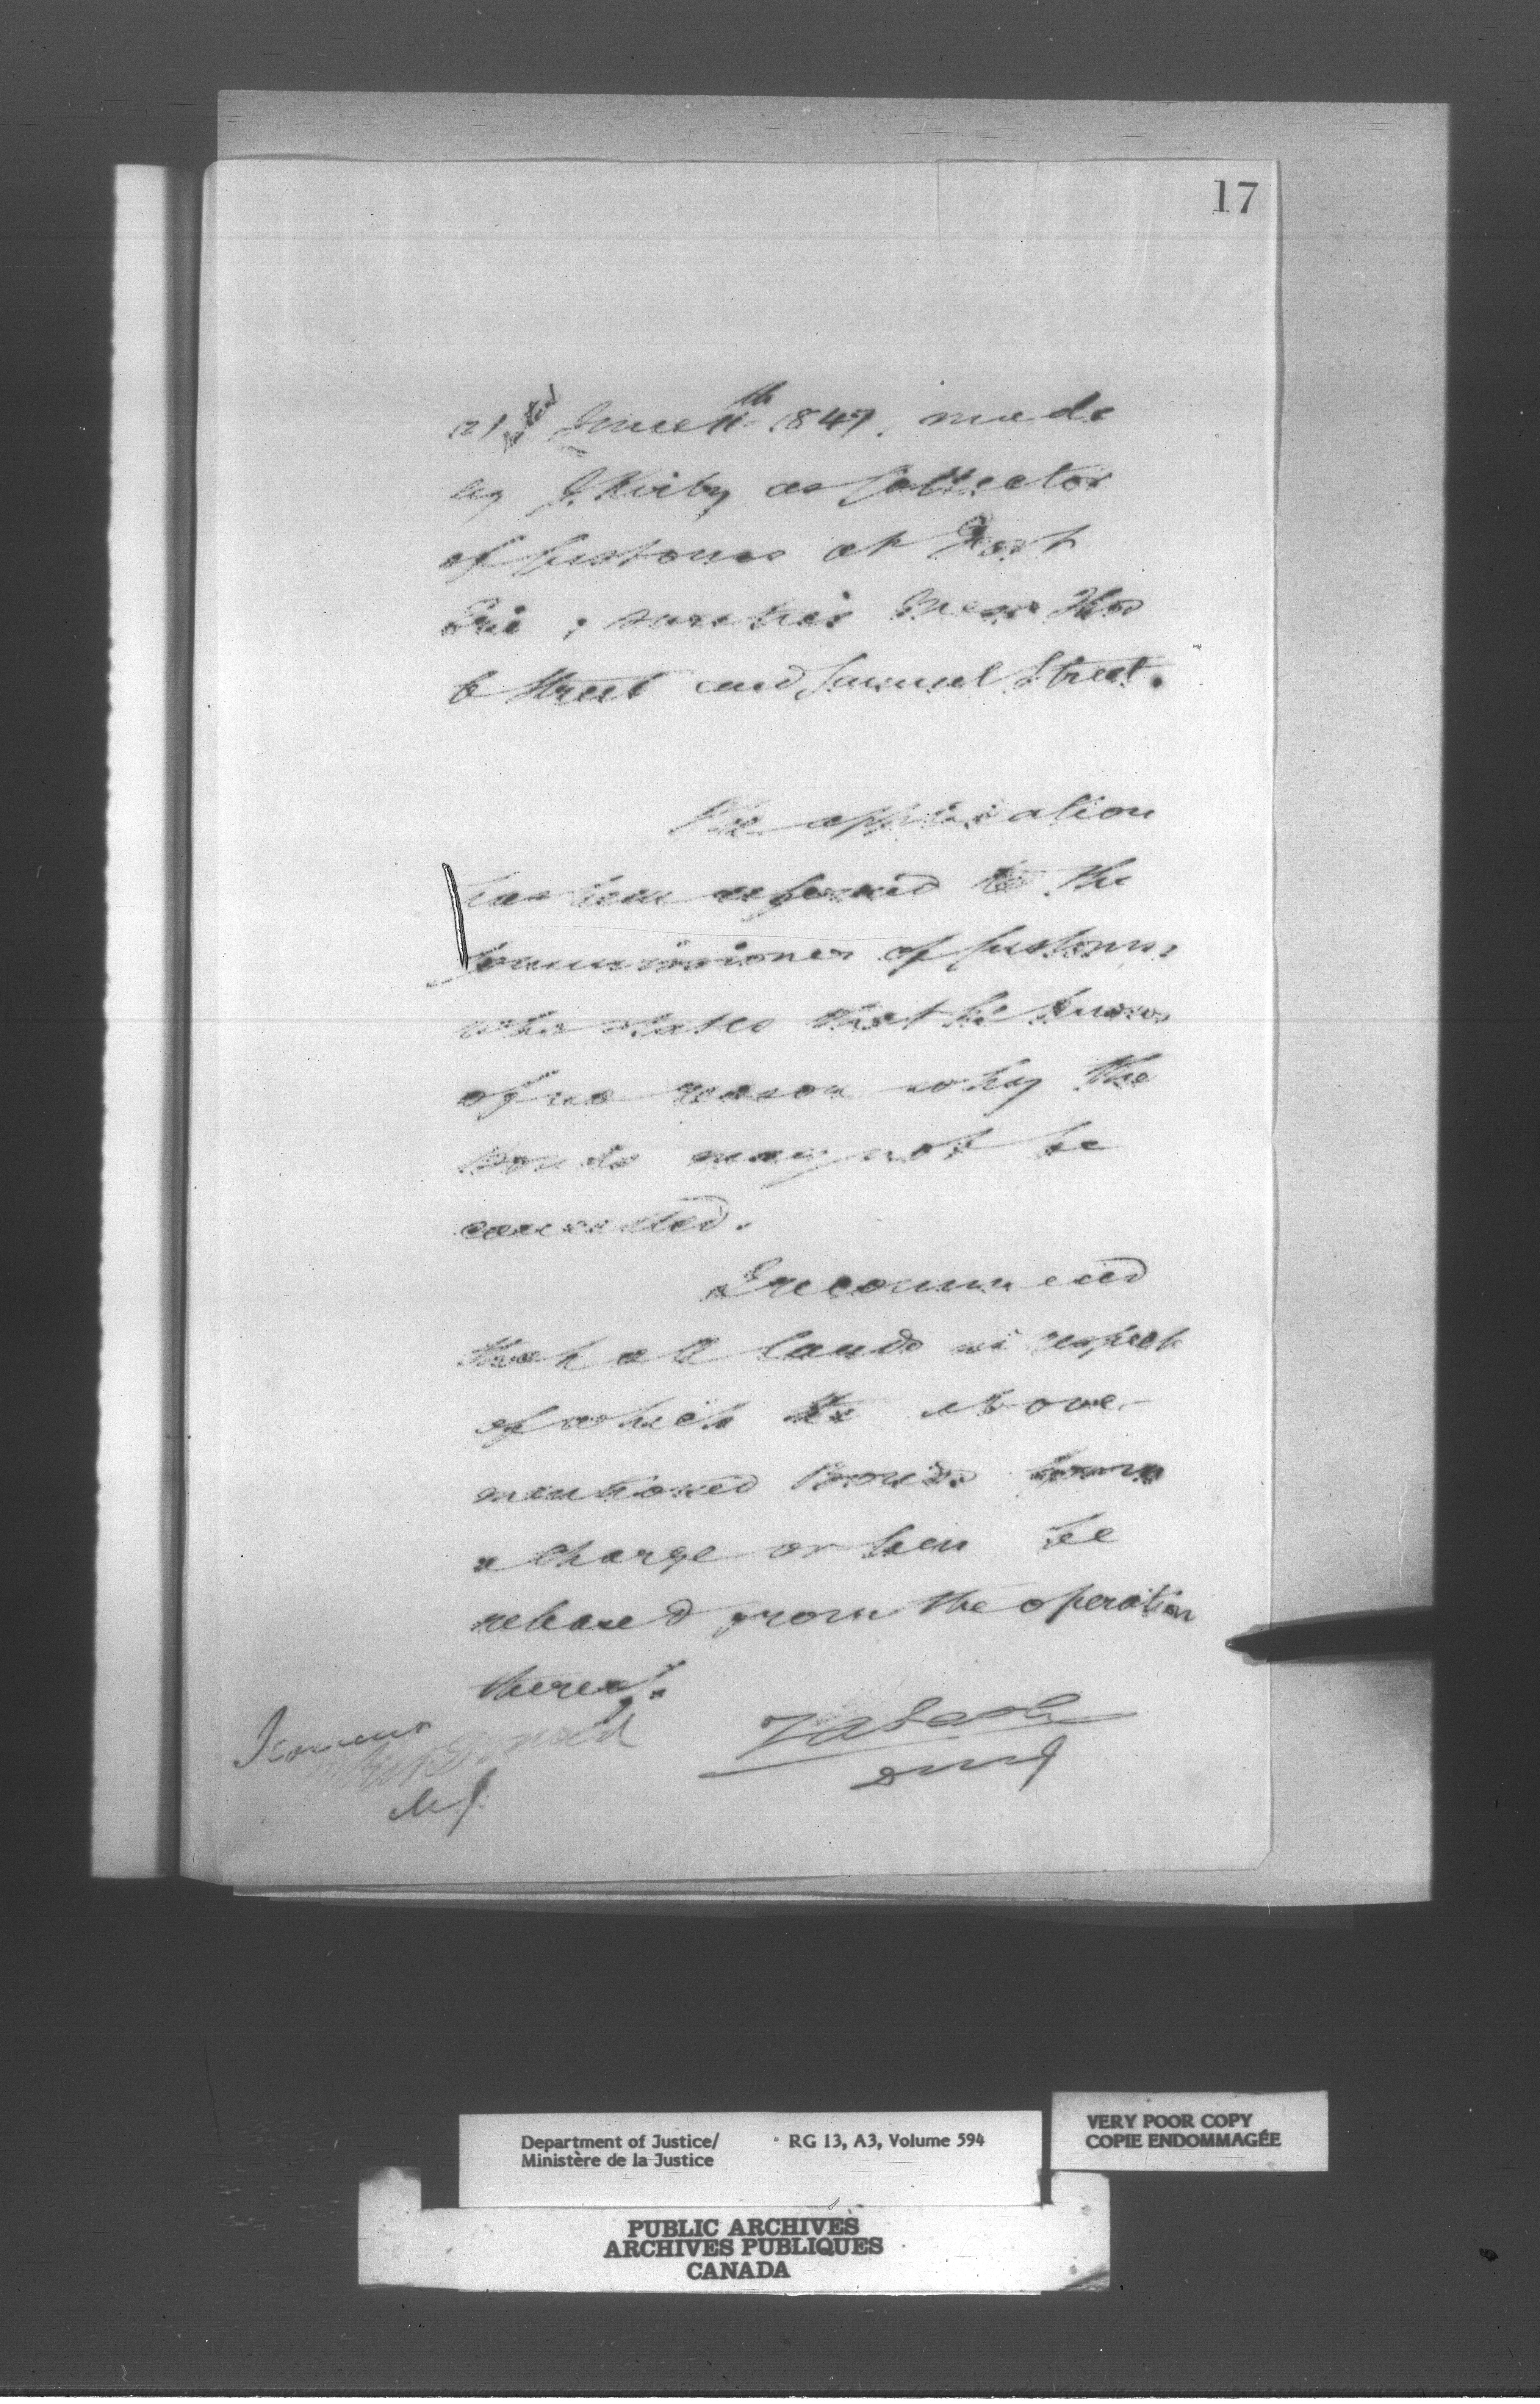 17
dated June 11th 1847. made
by J. Kirby as Collector
of Customs at Fort
Erie; sureties Thos
C Street and Samuel Street.
The application
has been referred to the
Commissioner of Customs
who states that he knows
of no reason why the
Bonds may not be
cancelled.
I recommend
that all lands in respect
of which the above-
mentioned Bonds form
a charge or lien be
released from the operation
thereof.
I concur
ZALash
MJ
DMJ
Department of Justice/
Ministère de la Justice
RG 13, A3, Volume 594
VERY POOR COPY
COPIE ENDOMMAGÉE
PUBLIC ARCHIVES
ARCHIVES PUBLIQUES
CANADA